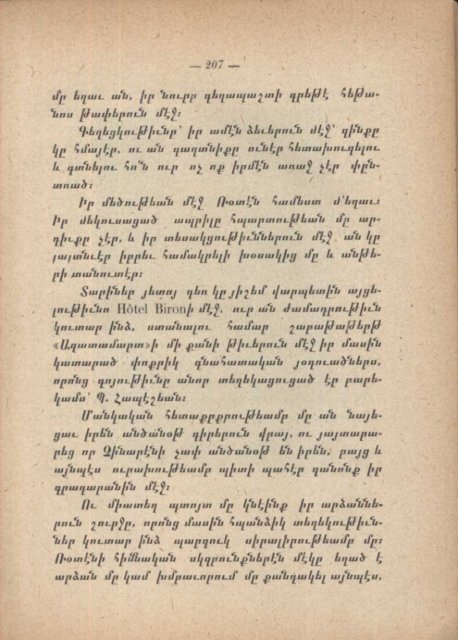 — 207 —
մը եղաւ ան, իր նուրբ գեղապաշտի գրեթէ հեթա-
նոս թափերուն մէջ:
Գեղեցկութիւնը՝ իր ամէն ձեւերուն մէջ՝ զինքը
կը հմայէր, ու ան գաղտնիքը ունէր հետախուզելու
և գտնելու հո՛ն ուր ոչ ոք իրմէն առաջ չէր փըն-
տռած:
Իր մեծութեան մէջ Ռօտէն համեստ մ՚եղաւ:
Իր մեկուսացած ապրիլը հպարտութեան մը ար-
դիւքը չէր, և իր տեսակցութիւններուն մէջ ան կը
յայտնւէր իբրեւ համակրելի խօսակից մը և անթե-
րի տանուտէր:
Տարիներ յետոյ դեռ կը յիշեմ վարպետին այցե-
լութիւնս Hôtel Bironի մէջ, ուր ան ժամադրութիւն
կուտար ինձ, ստանալու համար շաբաթաթերթ
«Ազատամարտ»ի մի քանի թիւերուն մէջ իր մասին
կատարած փոքրիկ գնահատական յօդուածներս,
որոնց գոյութիւնը անոր տեղեկացուցած էր բարե-
կամս՝ Պ. Հապէշեան:
Մանկական հետաքրքրութեամբ մը ան նայե-
ցաւ իրեն անծանօթ գիրերուն վրայ, ու յայտարա-
րեց որ Չինարէնի չափ անծանօթ են իրեն, բայց և
այնպէս ուրախութեամբ պիտի պահէր զանոնք իր
գրադարանին մէջ:
Ու միատեղ պտոյտ մը կնէինք իր արձաննե-
րուն շուրջը, որոնց մասին հպանձիկ տեղեկութիւն-
ներ կուտար ինձ պարզուկ սիրալիրութեամբ մը:
Ռօտէնի հիմնական սկզբունքներէն մէկը եղած է
արձան մը կամ խմբաւորում մը քանդակել այնպէս,